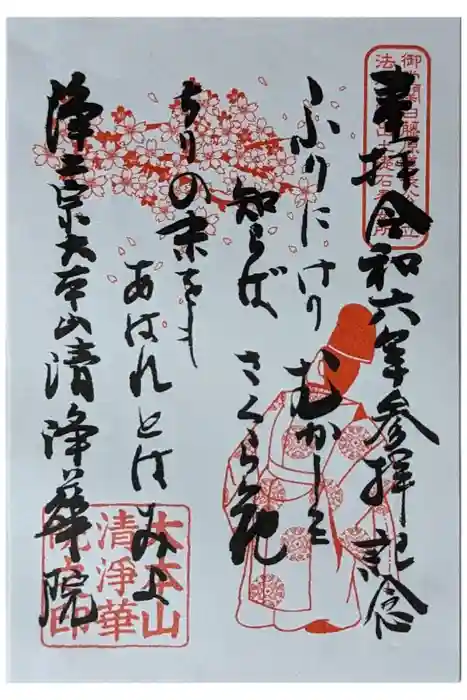 奉拝 令和六年参拝記念
ふりにけり
むかしを
知らば
さくら花
ちりの末をも
あはれとはみよ
浄土宗大本山清浄華院
大本山
清浄華
院之印